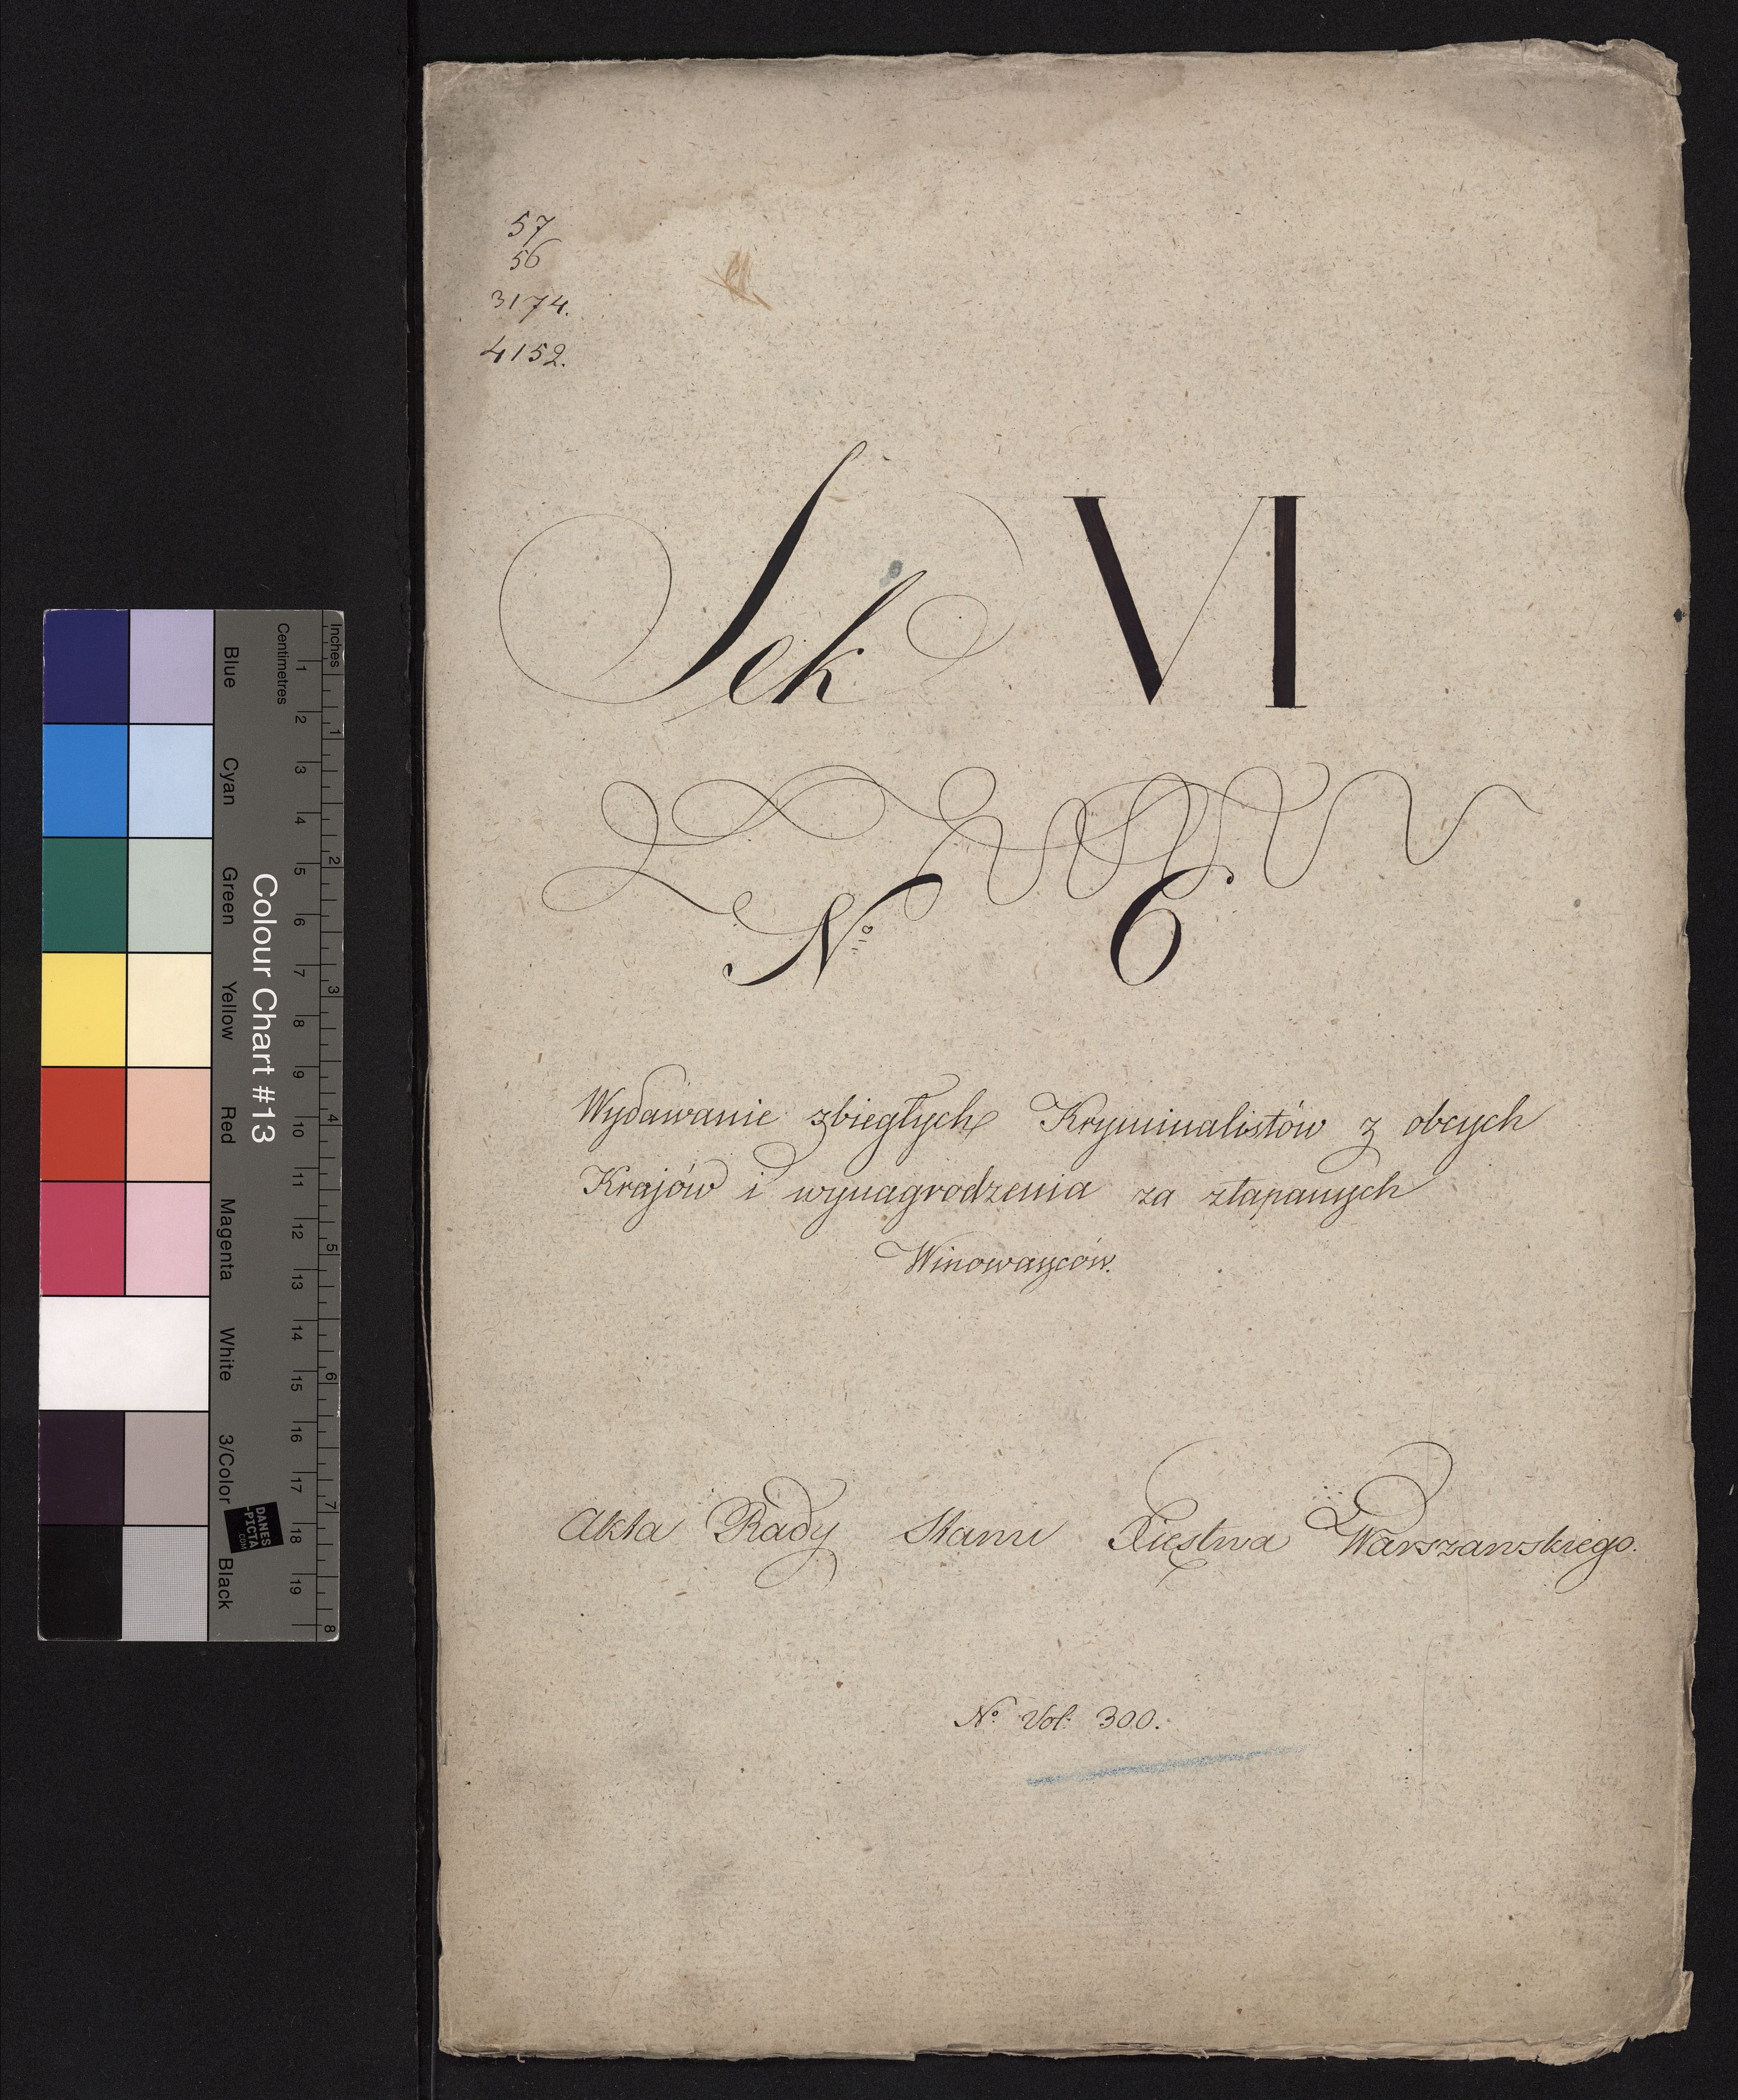 57
56
3174.
4152.
Sek VI
No 6
Wydawanie zbiegłych Kryminalistów z obcych
Krajów i wynagrodzenia za złapanych
Winowayców.
Akta Rady Stanu Xięstwa Warszawskiego.
No Vol: 300.
Inches
Centimetres
1 2 3 4 5 6 7 8
1 2 3 4 5 6 7 8 9 10 11 12 13 14 15 16 17 18 19
Colour Chart #13
Blue Cyan Green Yellow Red Magenta White 3/Color Black
DANES
PICTA
.COM